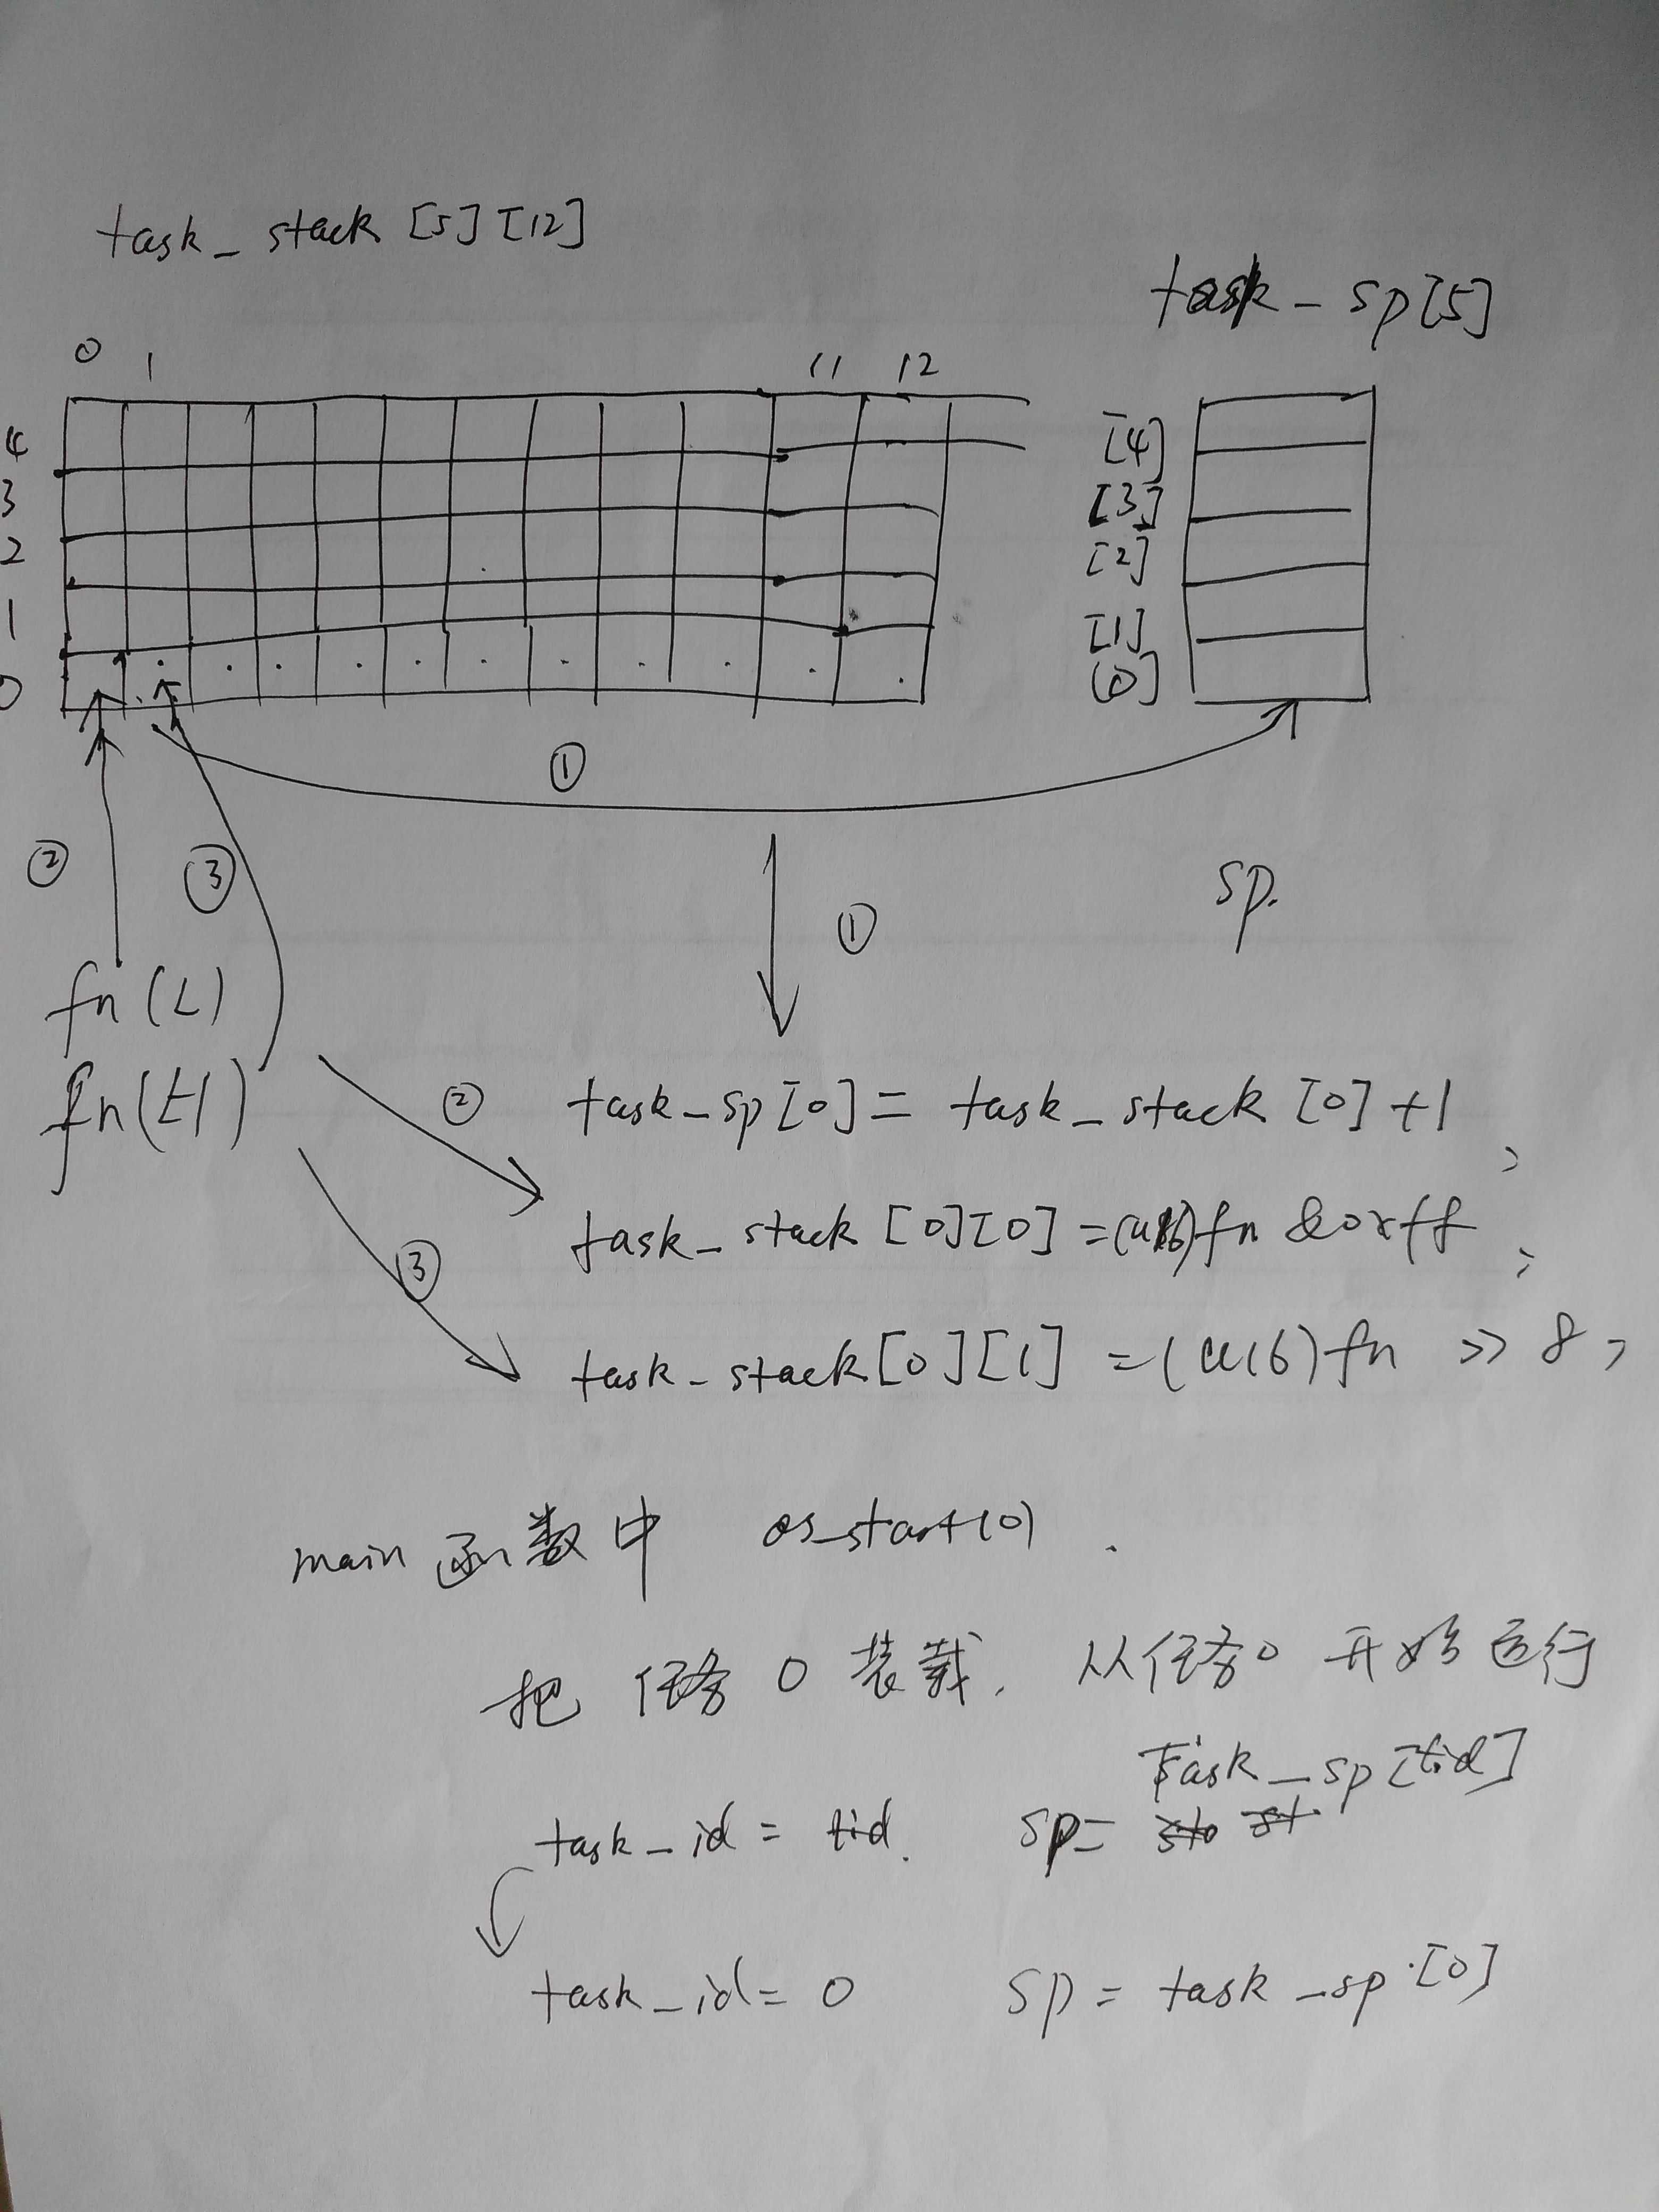 task_stack [5][12]
task_sp[5]
0 1 11 12
4
3
2
1
0
[4]
[3]
[2]
[1]
[0]
①
② ③ ① sp.
fn(L)
fn(H)
② task_sp[0] = task_stack [0]+1;
task_stack [0][0] =(u16)fn &0xff;
③ task_stack[0][1] =(u16)fn >> 8;
main函数中 os_start(0).
把任务0装载, 从任务0开始运行
Task_sp[tid]
task_id = tid. sp=
task_id = 0 sp = task_sp[0]